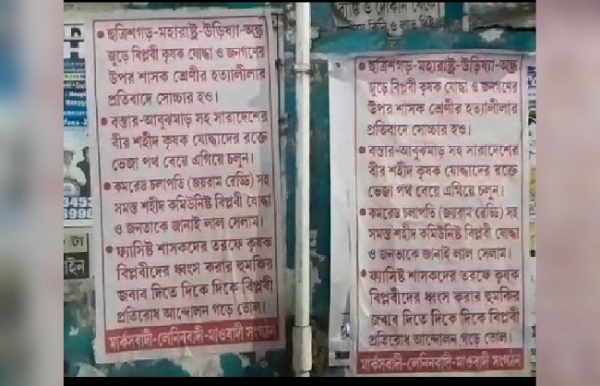 • ছত্রিশগড়-মহারাষ্ট্র-উড়িষ্যা-অন্ধ্র
জুড়ে বিপ্লবী কৃষক যোদ্ধা ও জনগণের
উপর শাসক শ্রেণীর হত্যালীলার
প্রতিবাদে সোচ্চার হও।
• বস্তার-আবুঝমাড় সহ সারাদেশের
বীর শহীদ কৃষক যোদ্ধাদের রক্তে
ভেজা পথ বেয়ে এগিয়ে চলুন।
• কমরেড চলাপতি (জয়রাম রেড্ডি) সহ
সমস্ত শহীদ কমিউনিষ্ট বিপ্লবী যোদ্ধা
ও জনতাকে জানাই লাল সেলাম।
• ফ্যাসিষ্ট শাসকদের তরফে কৃষক
বিপ্লবীদের ধ্বংস করার হুমকির
জবাব দিতে দিকে দিকে বিপ্লবী
প্রতিরোধ আন্দোলন গড়ে তোল।
মার্কসবাদী-লেনিনবাদী-মাওবাদী সংগঠন
• ছত্রিশগড়-মহারাষ্ট্র-উড়িষ্যা-অন্ধ্র
জুড়ে বিপ্লবী কৃষক যোদ্ধা ও জনগণের
উপর শাসক শ্রেণীর হত্যালীলার
প্রতিবাদে সোচ্চার হও।
• বস্তার-আবুঝমাড় সহ সারাদেশের
বীর শহীদ কৃষক যোদ্ধাদের রক্তে
ভেজা পথ বেয়ে এগিয়ে চলুন।
• কমরেড চলাপতি (জয়রাম রেড্ডি) সহ
সমস্ত শহীদ কমিউনিষ্ট বিপ্লবী যোদ্ধা
ও জনতাকে জানাই লাল সেলাম।
• ফ্যাসিষ্ট শাসকদের তরফে কৃষক
বিপ্লবীদের ধ্বংস করার হুমকির
জবাব দিতে দিকে দিকে বিপ্লবী
প্রতিরোধ আন্দোলন গড়ে তোল।
মার্কসবাদী-লেনিনবাদী-মাওবাদী সংগঠন